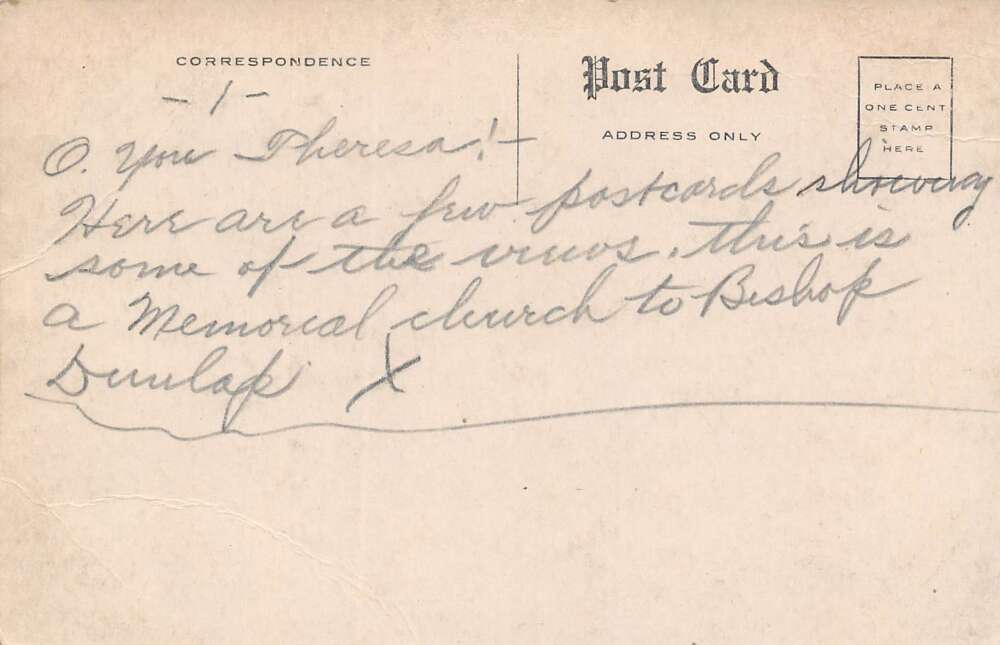 CORRESPONDENCE
Post Card
ADDRESS ONLY
PLACE A
ONE CENT
STAMP
HERE
- 1 -
O. You Theresa! -
Here are a few postcards showing
some of the views. this is
a Memorial church to Bishop
Dunlap X